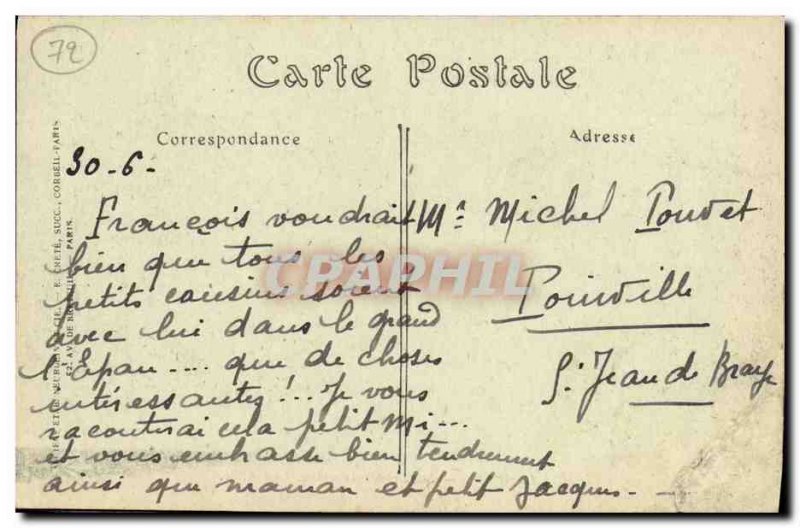 72
Carte Postale
Correspondance
Adresse
30-6-
François voudrait
bien que tous les
petits cousins soient
avec lui dans le grand
l'Épau .... que de choses
intéressantes!.. Je vous
raconterai cela petit Mi...
et vous embrasse bien tendrement
ainsi que maman et petit Jacques - -
Mr Michel
Poinville
St Jean de Braye
E. CRÉTÉ, SUCC., CORBEIL-PARIS
PARIS
CPAPHIL